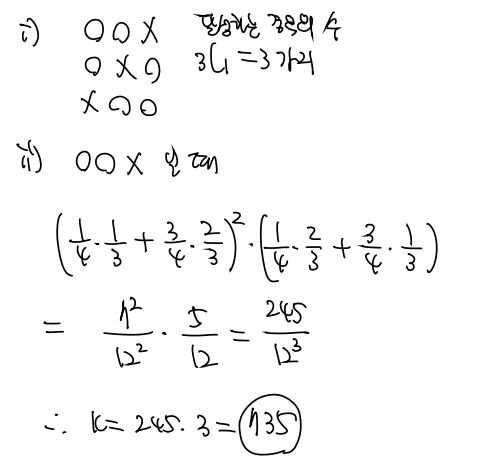 i) ○○X 만성하는 경우의 수
○X○ ₃C₁ = 3가지
X○○
ii) ○○X 일 때
(1/4 · 1/3 + 3/4 · 2/3)² · (1/4 · 2/3 + 3/4 · 1/3)
= 7²/12² · 5/12 = 245/12³
∴ k = 245 · 3 = 735